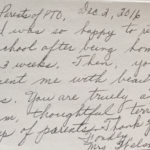 Parents of PTO, Dec 2, 2016
I was so happy to re
school after being hom
3 weeks. Then, yo
sent me with beau
s. You are truly a
m, thoughtful, terr
of parents. Thank
Fondly
Mrs.